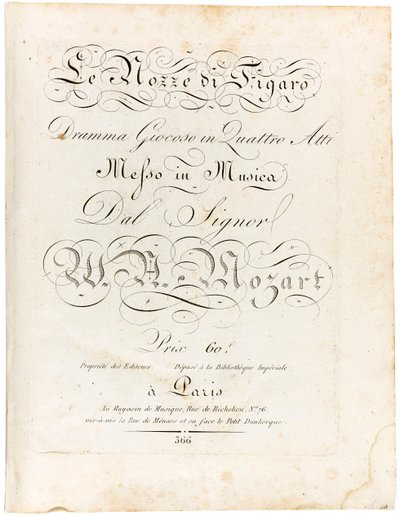 Le Nozze di Figaro
Dramma Giocoso in Quattro Atti
Meſso in Musica
Dal Signor
W. A. Mozart
Prix 60.f
Propriété des Editeurs. Déposé à la Bibliothèque Impériale.
à Paris
Au Magasin de Musique, Rue de Richelieu N.o 76
vis-à-vis la Rue de Ménars et en face le Petit Dunkerque.
566